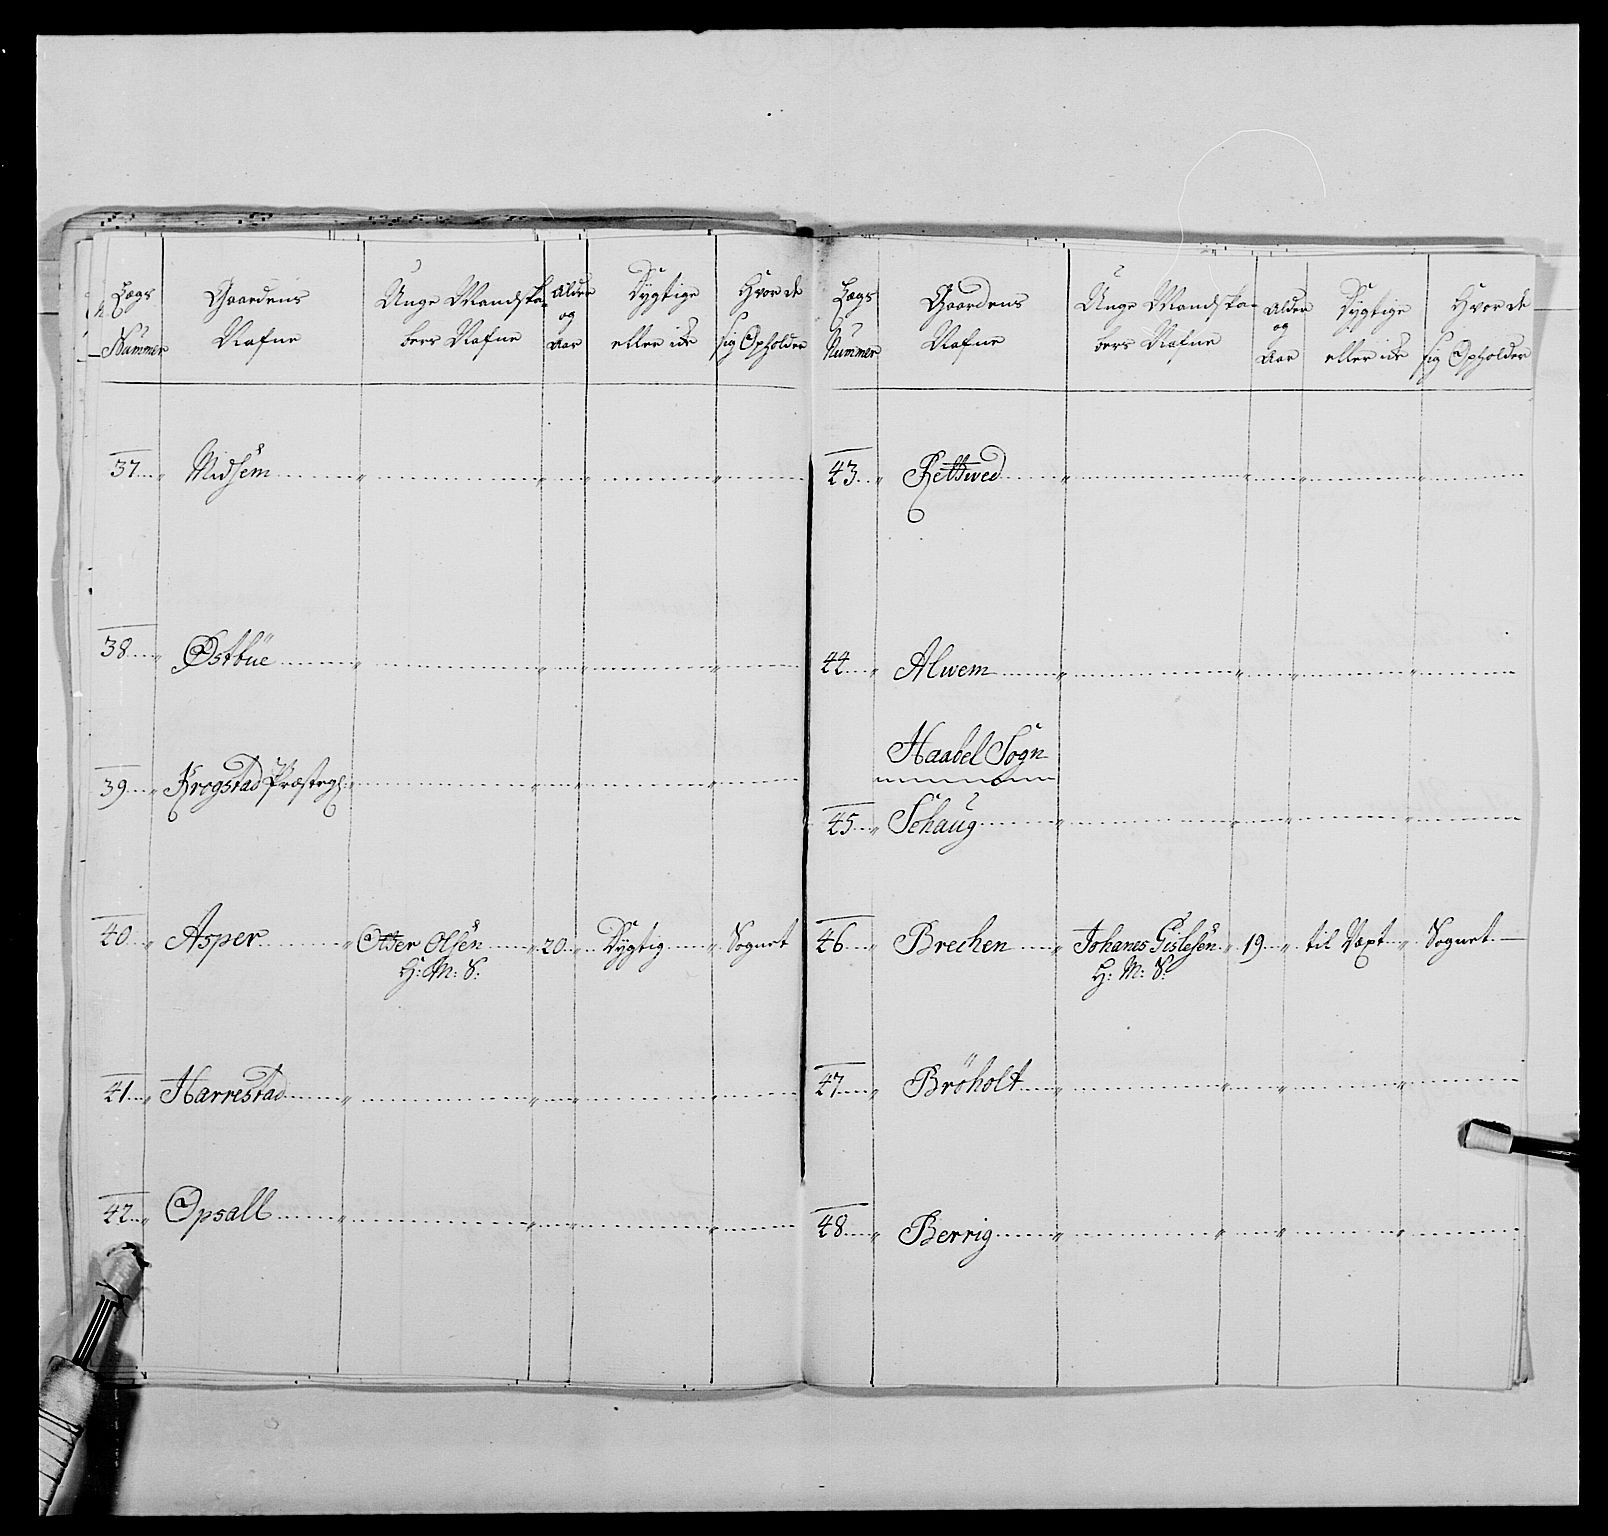 Lægs Nummer | Gaardens Nafne | Unge Mandska-bers Nafne | Alder og Aar | Dygtige eller ick | Hvor de sig Opholder
37 Midsem
38 Østbüe
39 Krogstad Præstegl:
40 Asper Otter Olsen 20 Dygtig Sognet
H: M: S:
41 Harrestad
42 Opsall
Lægs Nummer | Gaardens Nafne | Unge Mandska-bers Nafne | Alder og Aar | Dygtige eller ick | Hvor de sig Opholder
43 Rettwed
44 Alwem
Haabel Sogn
45 Schaug
46 Brechen Johanes Gislesen 19 til Vext Sognet
H: M: S:
47 Bröholt
48 Berrig